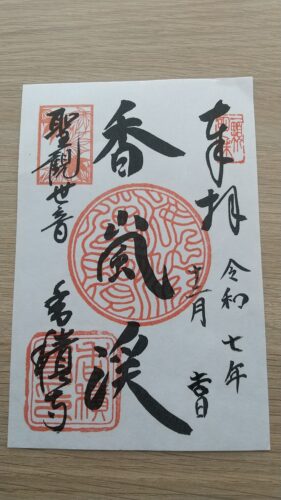 奉拝
令和七年
十一月 吉日
香嵐渓
聖観世音
香積寺